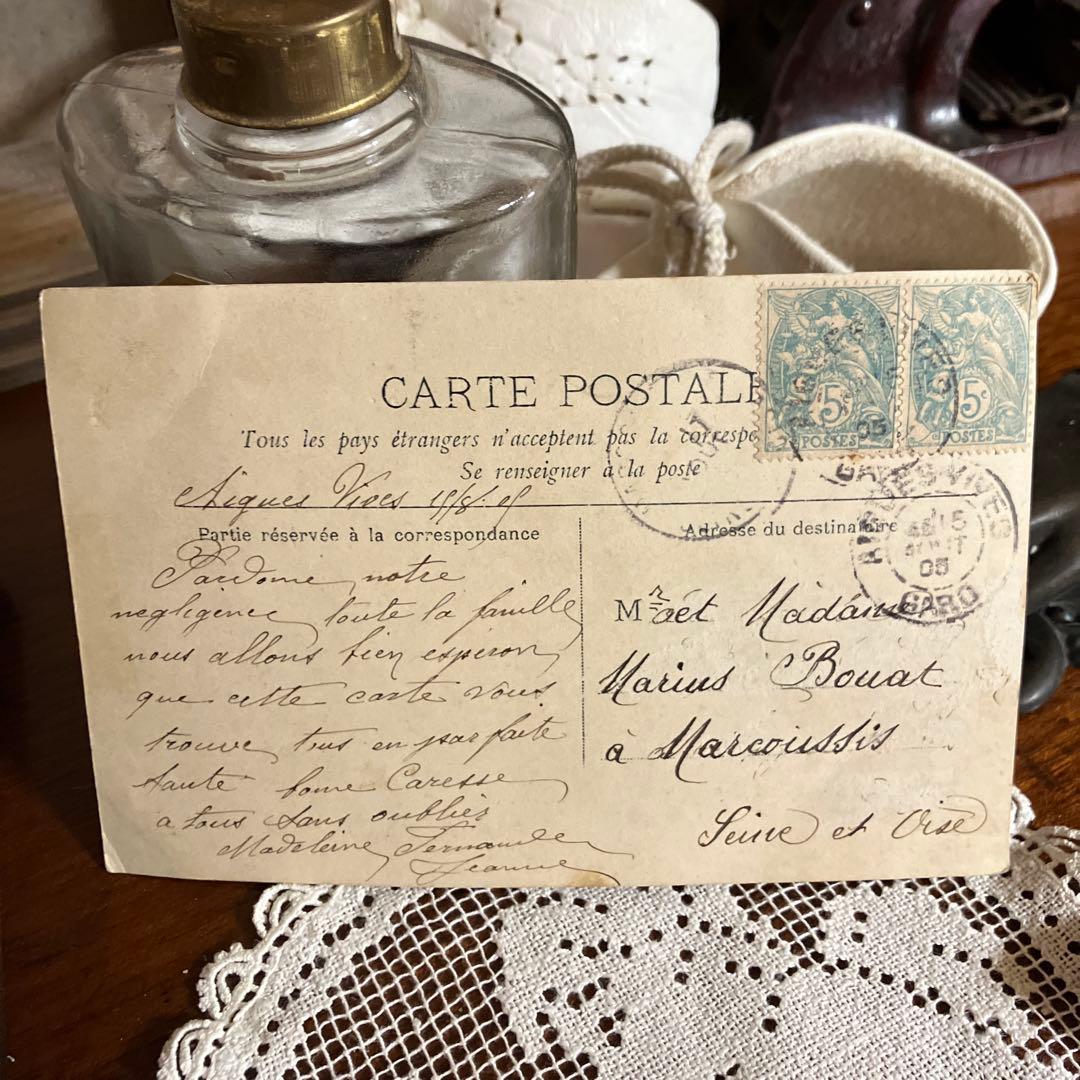 CARTE POSTALE
Tous les pays étrangers n'acceptent pas la correspo
Se renseigner à la poste
Aigues Vives 15/8/05
Partie réservée à la correspondance
Adresse du destinataire
Pardonne notre
negligence toute la famille
nous allons bien esperon
que cette carte vous
trouve tous en parfaite
santé bonne Caresse
a tous sans oublier
Madeleine Fernande
Jeanne
Mr et Madame
Marius Bouat
à Marcoussis
Seine et Oise
5c
POSTES
5c
POSTES
05
GARD
17
AOUT
AIGUES-VIVES
15
AOUT
05
GARD